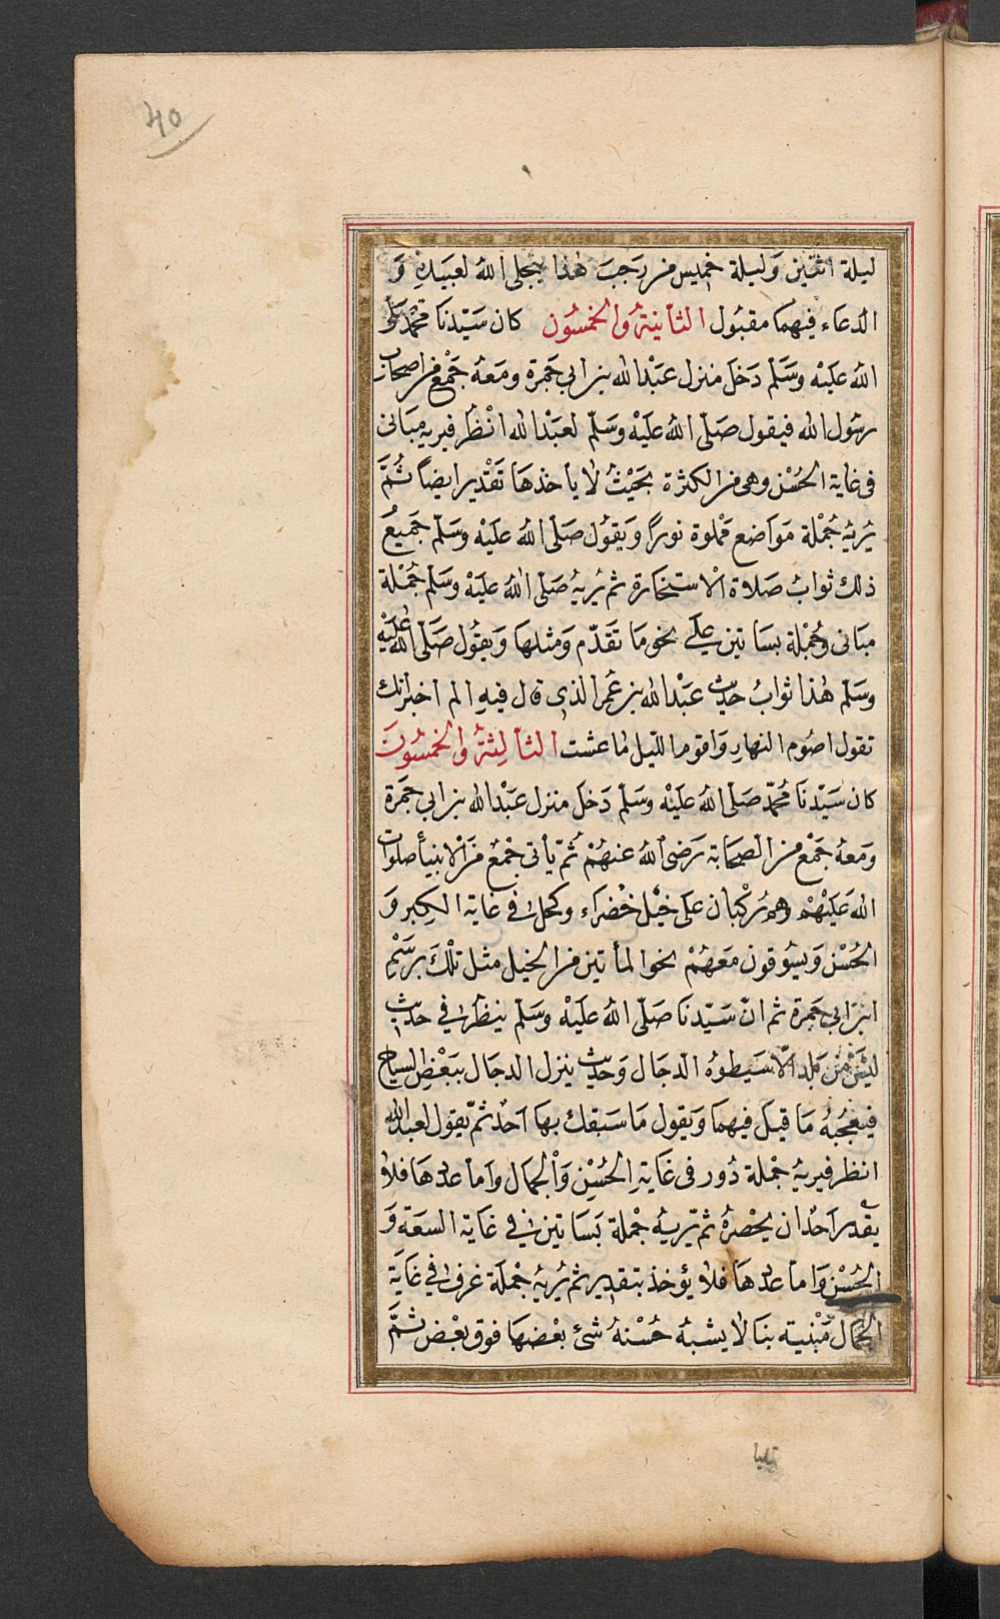 40
ليلة اثنين وَليلة خميس من رَجَبَ هٰذا يتجلى اللهُ لعَبيدِهِ وَ
الدعاء فيهما مقبُول الثانيَةُ وَالخمسُون كان سَيّدنَا محمّد صَلى
اللهُ عَليْه وسَلّم دَخَلَ منزل عَبْدالله بن ابي جَمرَة ومَعَهُ جَمْع من اصحَاب
رسُول الله فيقول صَلّى اللهُ عليْه وسَلّم لعَبْدالله انْظُر فيريهِ مبَانى
فى غاية الحُسْن وهى من الكثرة بحَيْثُ لا ياخذهَا تَقْدير ايضًا ثُمَّ
يُريهُ جُمْلة مَوَاضع مملوة نورًا وَيقوُل صَلّى اللهُ عليْه وسَلّم جَميعُ
ذلك ثوابُ صَلاة الاستخارة ثم يُريهُ صَلّى اللهُ عليْه وسَلّم جُمْلة
مبَانى وَجُمْلة بسَاتين على نحو مَا تَقَدّم وَمثلهَا وَيقوُل صَلّى اللهُ عَليْه
وسَلّم هٰذا ثوابُ حديث عَبْدالله بن عُمر الذى قال فيهِ الم اخبر انك
تقول اصُوم النهار وَاقوم الليل ما عشت الثالِثةُ وَالخمسُونَ
كان سَيّدنَا محُمّد صَلّى اللهُ عليْه وسَلّم دَخَلَ منزل عَبْدالله بن ابي جَمرَة
ومَعهُ جَمْع من الصحَابة رَضى اللهُ عنهُمْ ثُمّ يأتى جْمعٌ مَن الانبيأ صلوات
الله عَليْهمْ وهم رُكْبان عَلى خيْل خُضْر وكحل فى غاية الكِبر وَ
الحُسْن وَيسُوقون مَعَهُمْ نحو المأتين من الخيل مثل تلْكَ برَسْمِ
ابن ابي جَمرَة ثم انّ سَيّدنَا صَلّى اللهُ عليْه وسَلّم ينظرُ فى حديث
ليْسَ مِنْ بَلد الاّ سَيطوُهُ الدجَال وَحديث ينزل الدجَال ببَعْضِ السباخ
فيعْجبُهُ مَا قيل فيهما وَيقول مَا سَبقك بهَا اَحَدٌ ثمّ يقول لعبدالله
انظر فيريهُ جمْلة دُور فى غَايةِ الحُسْن وَالجمَال وَاما عددهَا فلا
يقدر اَحدٌ ان يحْصرهُ ثم يّريهُ جْملة بَسَاتين فى غايَة السعَة وَ
الحُسْن وَاما عددهَا فلا يؤخذ بتقدير ثم يُريهُ جُمْلة غرف فى غايَة
الجمَال مَبْنية بنَا لا يشبهُ حُسْنهُ شئ بعْضهَا فوق بعْض ثمَّ